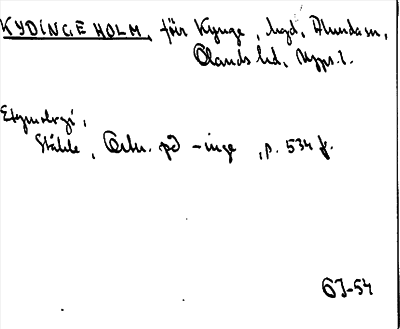 KYDINGEHOLM, förr Kydinge, hgd, Almunda sn,
Ölands hd, Upps. l.
Etymologi,
Ståhle, Ortn. på -inge, p. 534 f.
GJ-54